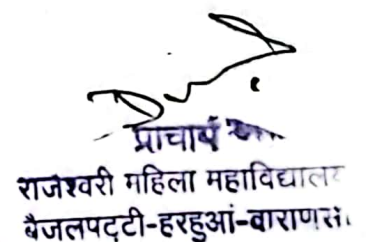 प्राचार्य
राजेश्वरी महिला महाविद्यालय
बैजलपट्टी-हरहुआं-वाराणसी.